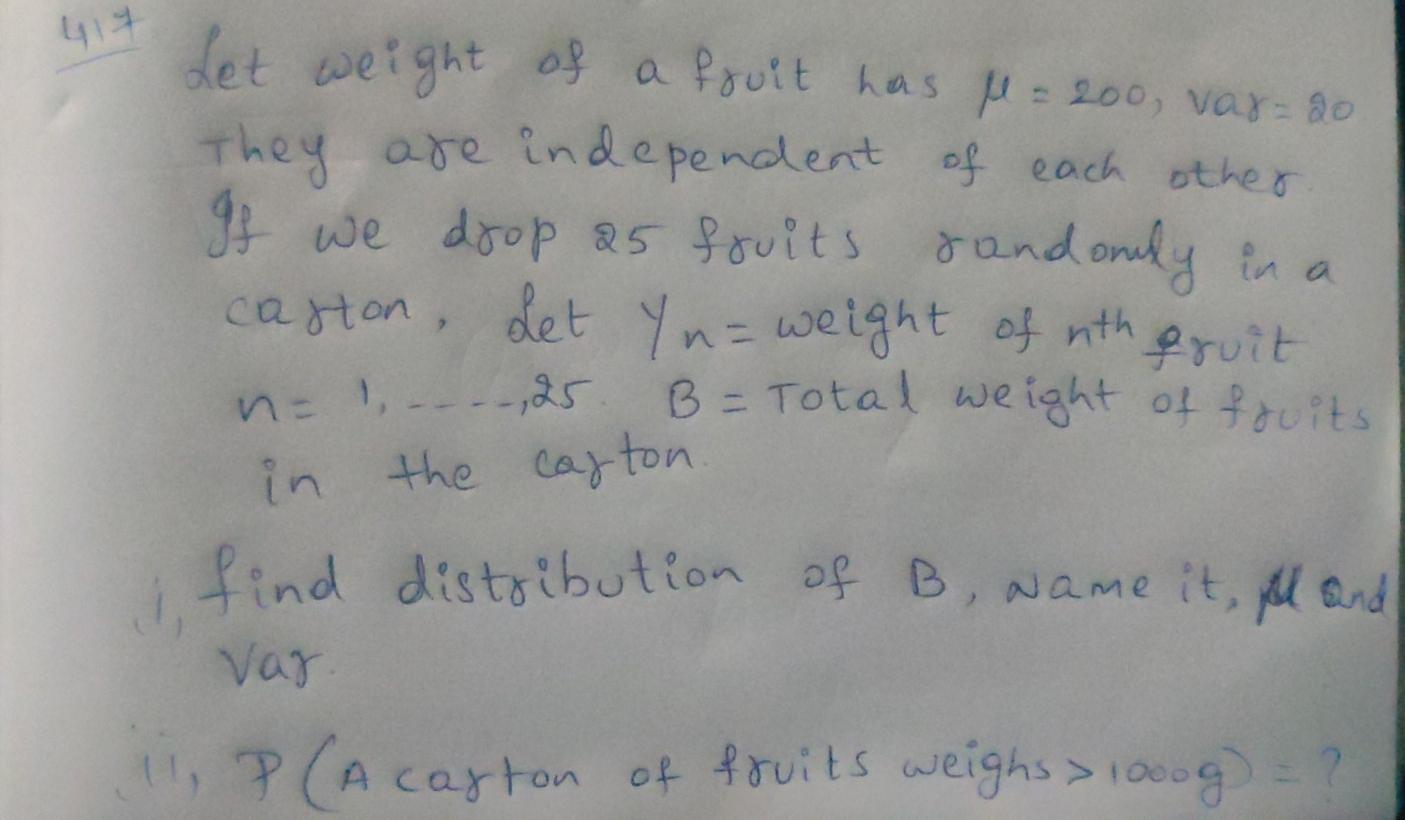 417
Let weight of a fruit has μ = 200, var = 20
They are independent of each other
If we drop 25 fruits randomly in a
carton. Let Yn = weight of nth fruit
n = 1, -----,25. B = Total weight of fruits
in the carton.
i, find distribution of B, Name it, μ and
var.
ii, P(A carton of fruits weighs > 1000g) = ?